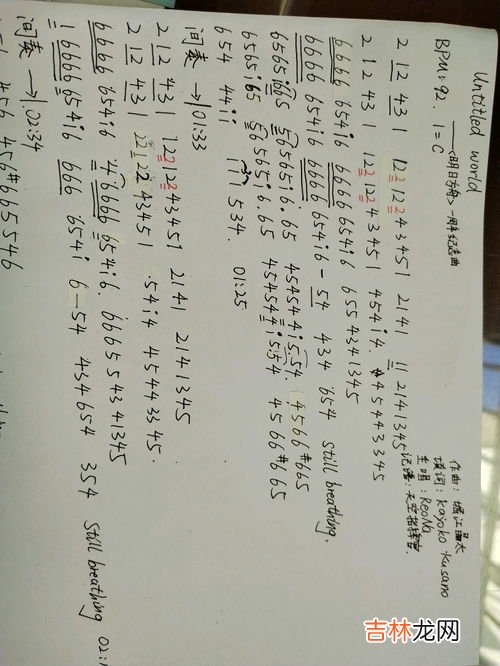 Untitled world
——《明日方舟》一周年纪念曲
作曲：堀江晶太
填词：Kayoko Kusano
主唱：ReoNa
记谱：天空指挥官
BPM：92 1=C
2 12 43 1 122122 43451 2141 11 2141345
2 12 43 1 122122 43451 4514. #45443345
6666 6541̇6 6666 6541̇6 6554341345
6666 6541̇6 6666 6541̇6 - 54 434 654 still breathing.
65651̇665 565651̇6.65 4545441̇5.54. 4566#665
65651̇65 565651̇6.65 4545441̇554 4566#665
654 441̇1̇ 1̇1̇1̇534. 01:25
间奏 → 01:33
212 431 122122 43451 2141 2141345
2 12 431 221243451 .541̇4 45443345
6666 6541̇6 46666 6541̇6. 6665543 41345
16666 6541̇6 666 6541̇ 6-54 434654 354 still breathing 02:1
间奏 → 02:34
456 456#665546
吉林龙网